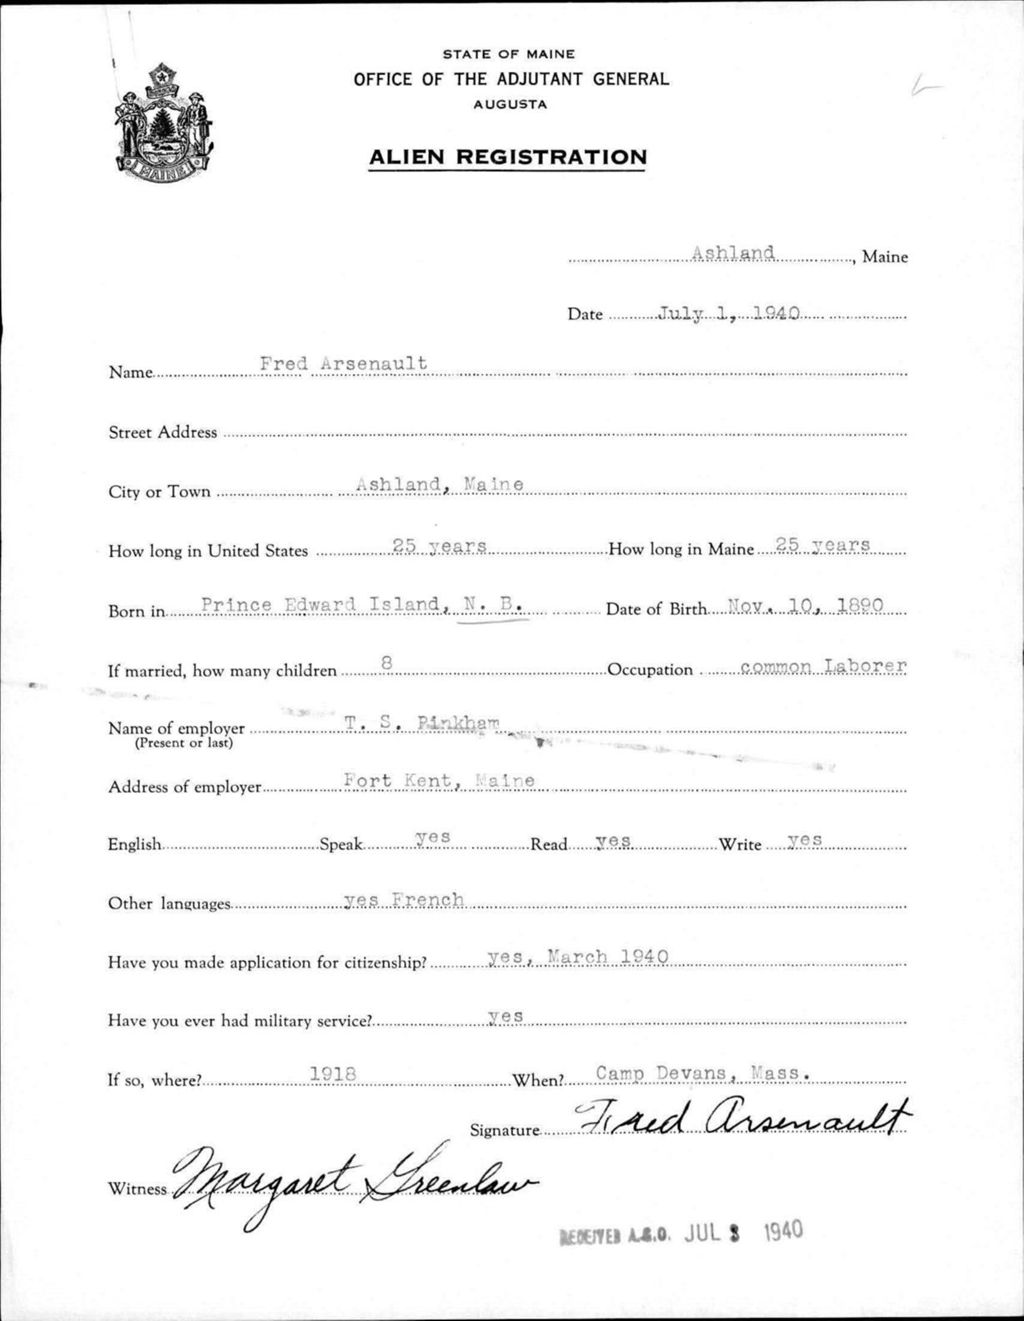 STATE OF MAINE
OFFICE OF THE ADJUTANT GENERAL
AUGUSTA
ALIEN REGISTRATION
MAINE
Ashland, Maine
Date July 1, 1940
Name Fred Arsenault
Street Address
City or Town Ashland, Maine
How long in United States 25 years How long in Maine 25 years
Born in Prince Edward Island, N. B. Date of Birth Nov. 10, 1890
If married, how many children 8 Occupation common Laborer
Name of employer T. S. Pinkham
(Present or last)
Address of employer Fort Kent, Maine
English Speak yes Read yes Write yes
Other languages yes French
Have you made application for citizenship? yes, March 1940
Have you ever had military service? yes
If so, where? 1918 When? Camp Devans, Mass.
Signature Fred Arsenault
Witness Margaret Greenlaw
RECEIVED A.G.O. JUL 3 1940